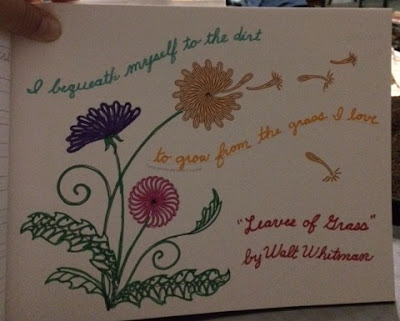 I bequeath myself to the dirt
to grow from the grass I love
"Leaves of Grass"
by Walt Whitman